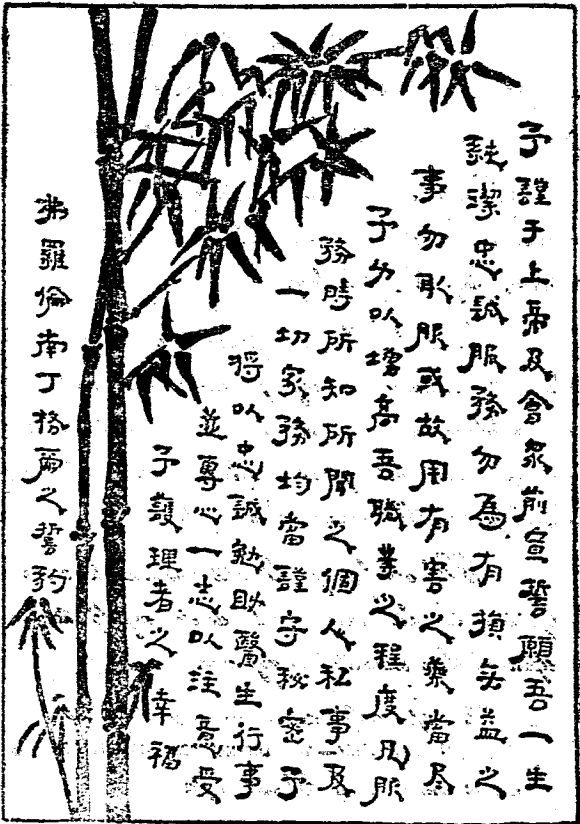 予謹于上帝及會衆前宣誓願吾一生
純潔忠誠服務勿為有損無益之
事勿取服或故用有害之藥當尽
予力以增高吾職業之程度凡服
務時所知所聞之個人私事及
一切家務均當謹守秘密予
將以忠誠勉助醫生行事
並專心一志以注意受
予護理者之幸福
弗羅倫南丁格爾之誓約